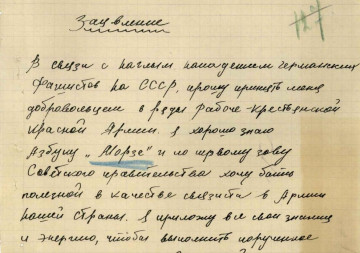 Заявление
127
В связи с наглым нападением германских
фашистов на СССР, прошу принять меня
добровольцем в ряды Рабоче-Крестьянской
Красной Армии. Я хорошо знаю
Азбуку „Морзе" и по первому зову
Советского правительства хочу быть
полезной в качестве связиста в Армии
нашей Страны. Я приложу все свои знания
и энергию, чтобы выполнить порученное